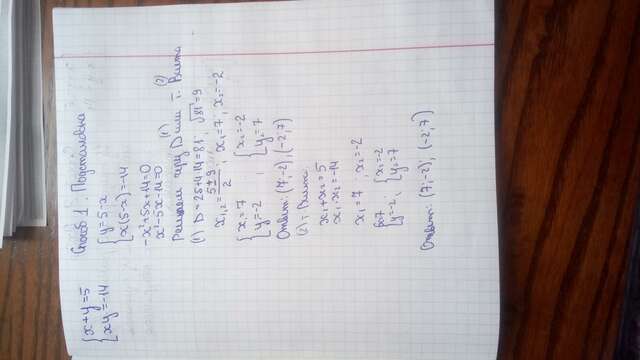 {x+y=5
{xy=-14
Способ 1. Подстановка
{y=5-x
{x(5-x)=-14
-x²+5x+14=0
x²-5x-14=0
(1) (2)
Решаем через D или т. Виета
(1) D=25+4·14=81; √81=9
x₁,₂=(5±9)/2; x₁=7; x₂=-2
{x₁=7 {x₂=-2
{y₁=-2, {y₂=7
Ответ: (7;-2); (-2;7)
(2) т. Виета
x₁+x₂=5
x₁·x₂=-14
x₁=7; x₂=-2
{y₁=-2, {x₂=-2
{y₂=7
Ответ: (7;-2); (-2;7)